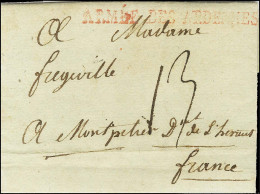 ARMÉE DES ARDENNES
A Madame
fregeville
13
A Montpelier Dt. de l'herault
france